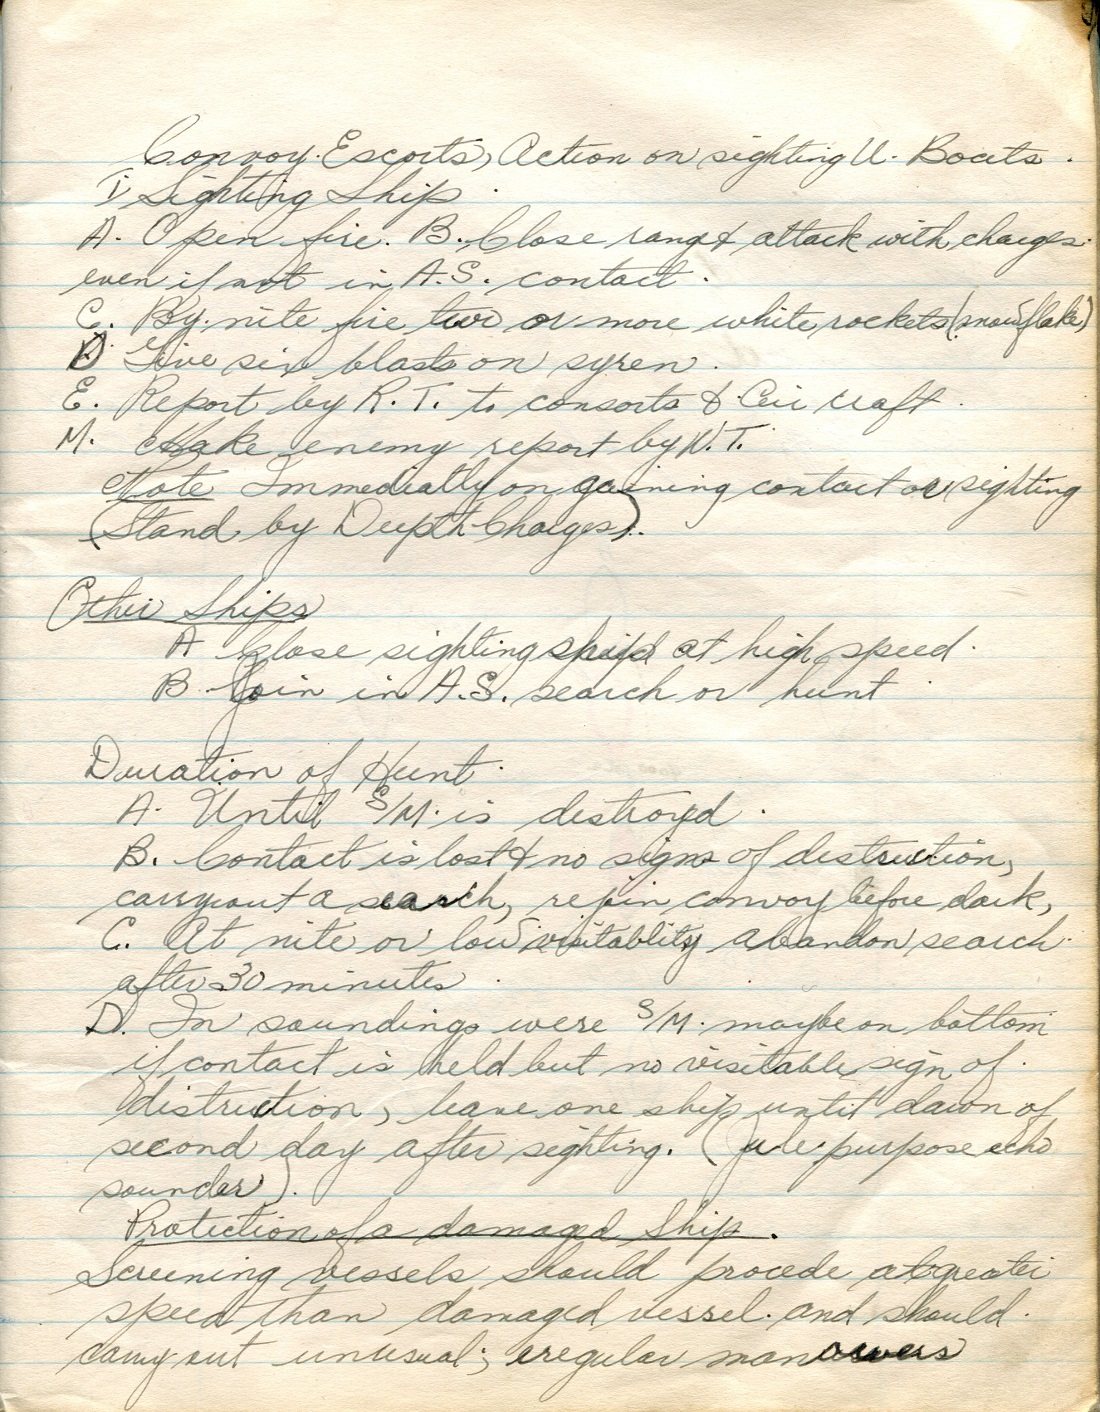 Convoy. Escorts, Action on sighting U. Boats.
1 Sighting Ship.
A. Open fire. B. Close range & attack with charges.
even if not in A.S. contact.
C. By nite fire two or more white rockets (snowflake)
D Give six blasts on syren.
E. Report by R.T. to consorts & air craft.
M. Make enemy report by W.T.
Note Immediatly on gaining contact or sighting
(Stand by Depth Charges).
Other Ships
A Close sighting at high speed.
B. Join in A.S. search or hunt
Duration of Hunt.
A. Until S/M. is distroyed.
B. Contact is lost & no signs of distruction,
carry out a search, rejoin convoy before dark,
C. At nite or low visitablity abandon search.
after 30 minutes.
D. In soundings were S/M. maybe on bottom
if contact is held but no visitable sign of.
distruction, leave one ship until dawn of
second day after sighting. ( purpose echo
sounder).
Protection of a damaged Ship.
Screening vessels should procede at greater
speed than damaged vessel. and should.
carry out unusual; eregular